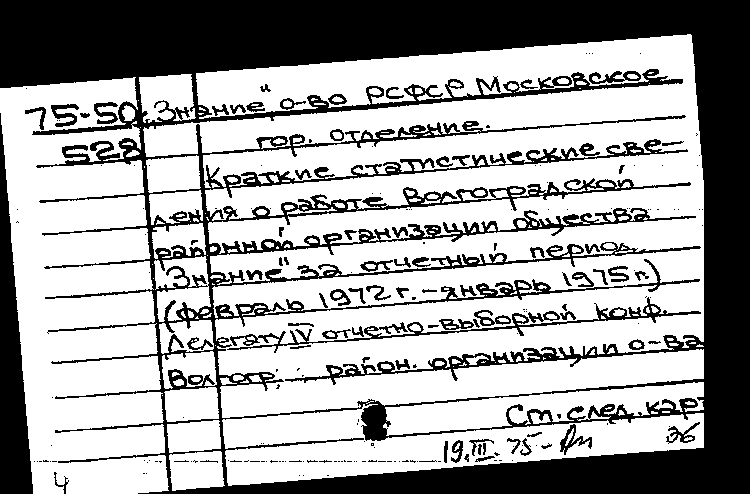 75-50 „Знание", о-во РСФСР. Московское
528 гор. отделение.
Краткие статистические све-
дения о работе Волгоградской
районной организации общества
„Знание" за отчетный период
(февраль 1972 г. – январь 1975 г.)
Делегату IV отчетно-выборной конф.
Волгогр. район. организации о-ва
См. след. карт
19.III.75 -
36
4